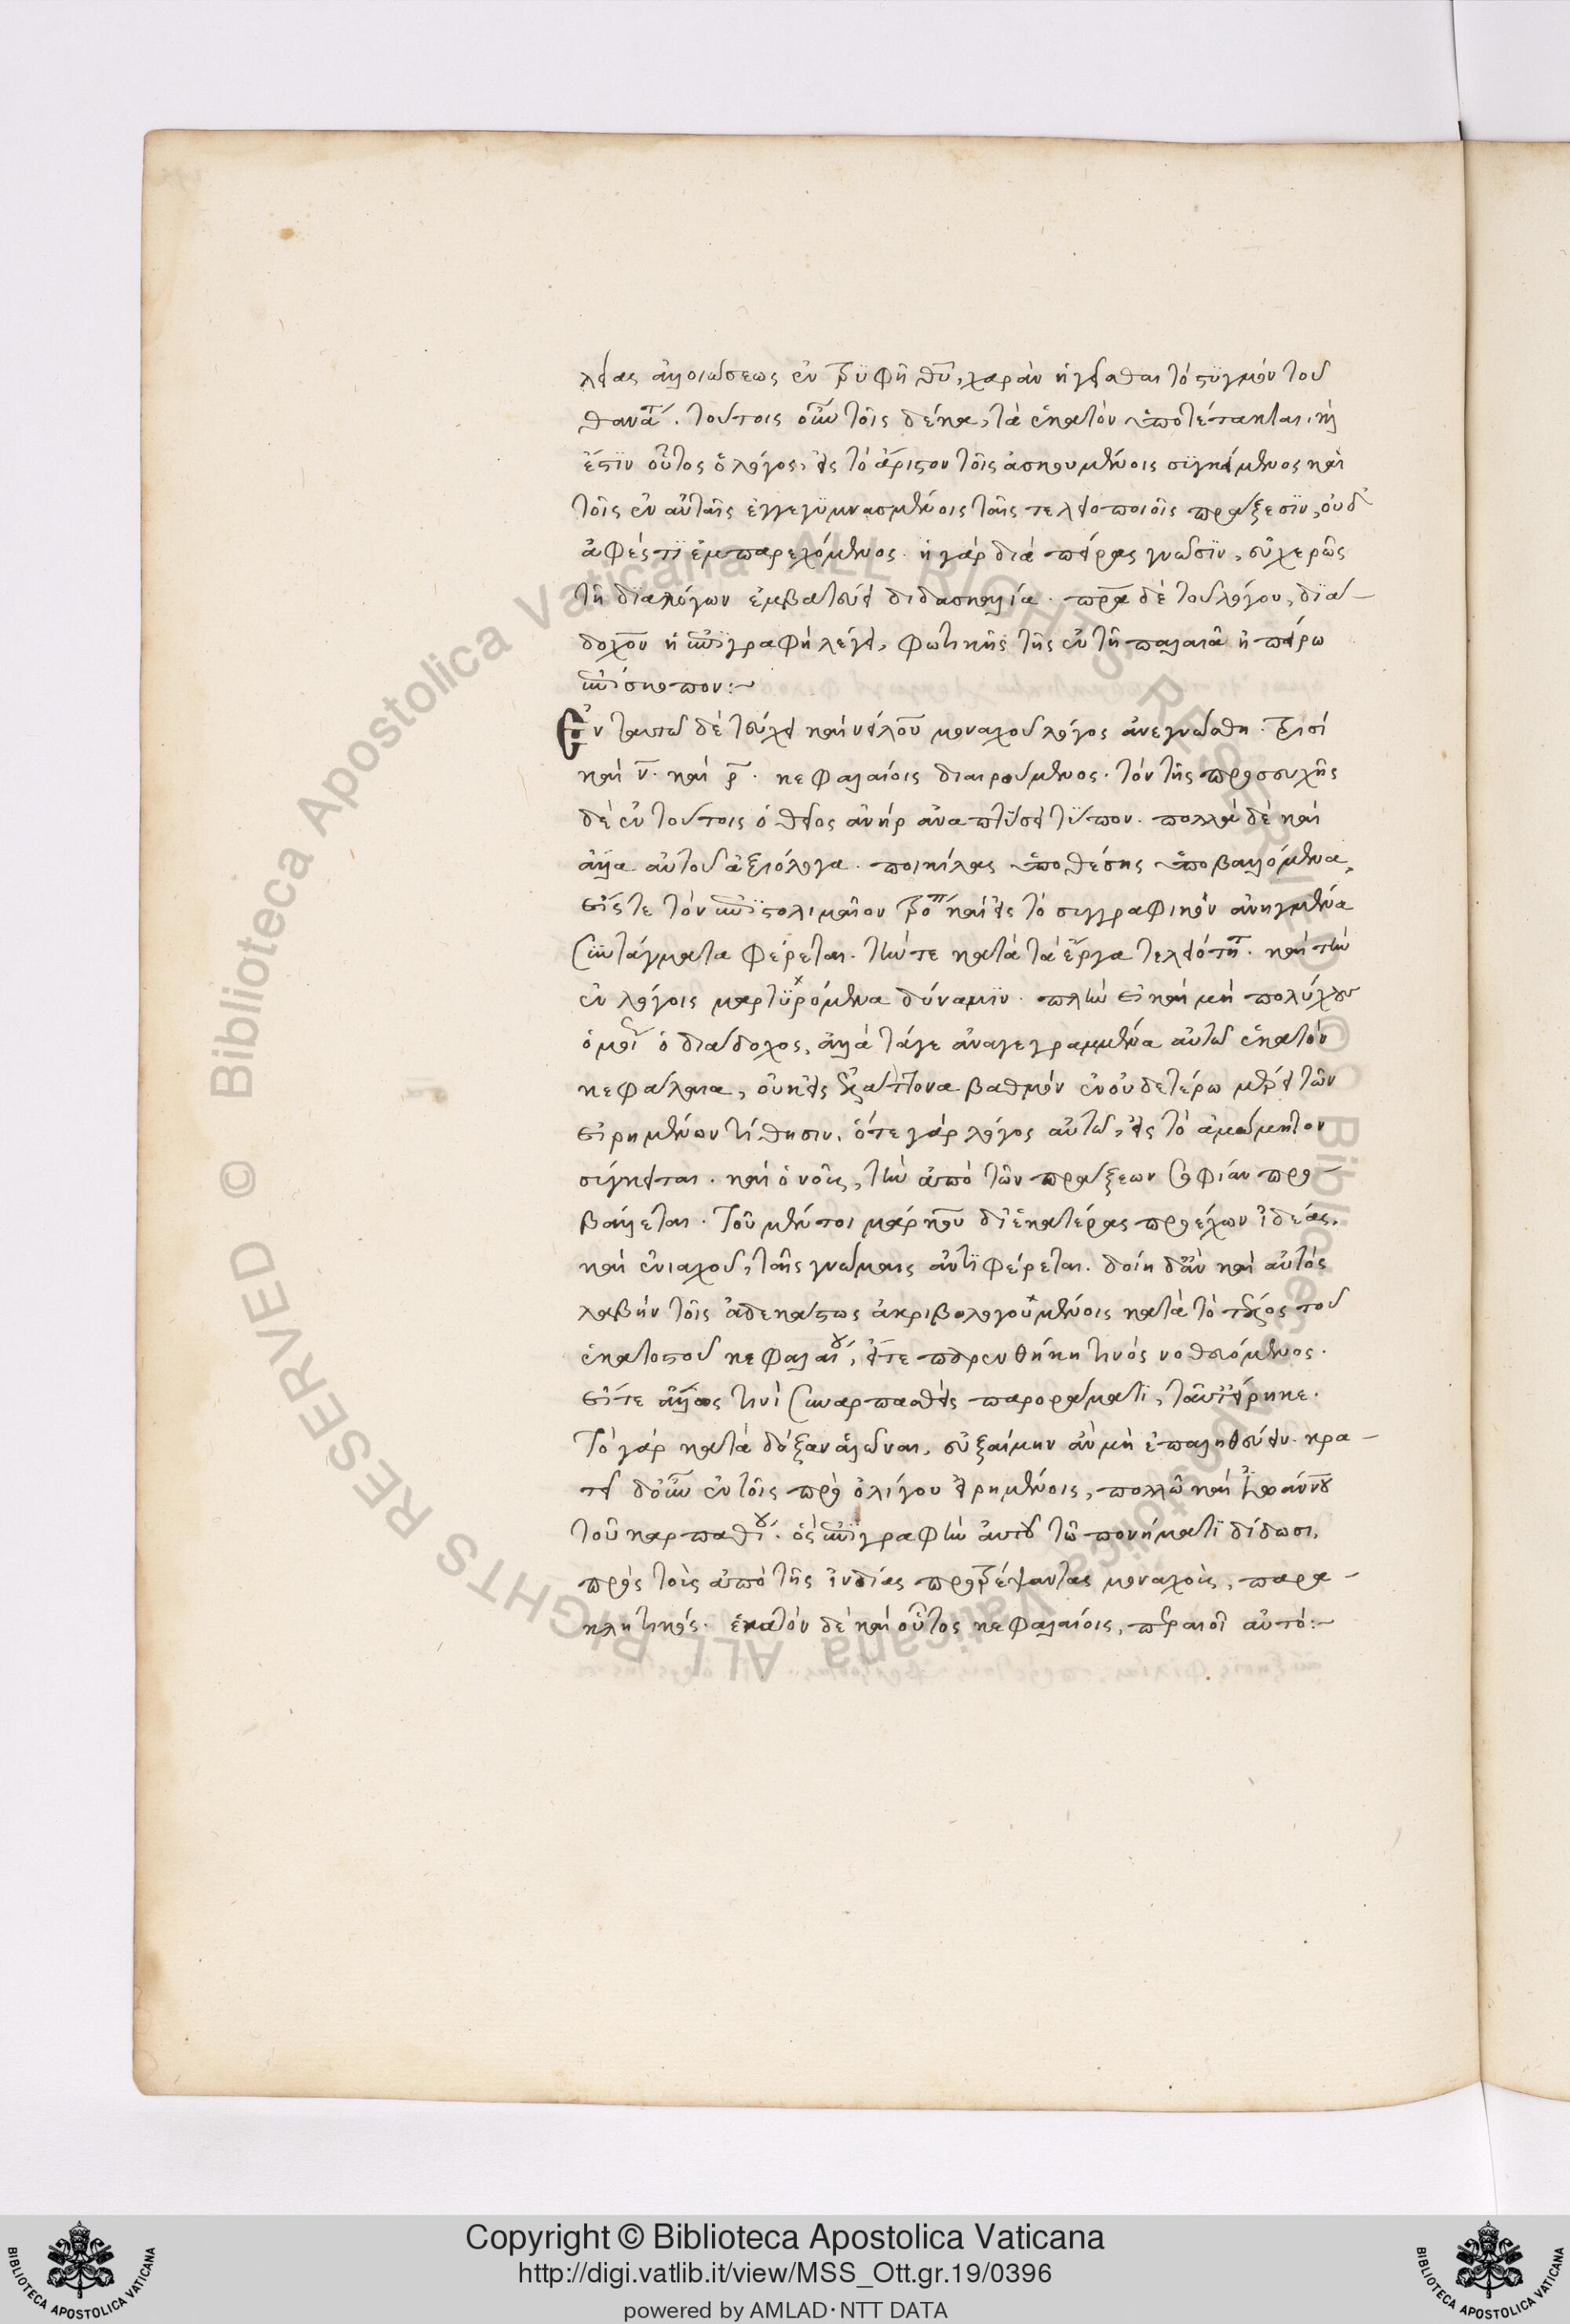 λείας ἀλλοιώσεως ἐν τρυφῇ θυ, χαρὰν ἡγεῖσθαι τὸ στυγνὸν τοῦ
θανάτ. τούτοις οὖν τοῖς δέκα, τὰ ἑκατὸν ὑποτέτακται. καὶ
ἔστιν οὗτος ὁ λόγος, εἰς τὸ ἄριστον τοῖς ἀσκουμένοις συγκείμενος καὶ
τοῖς ἐν αὐταῖς ἐγγεγυμνασμένοις ταῖς τελειοποιοῖς πράξεσιν, οὐδ
ἀφές τι ἐμπαρεχόμενος. ἡ γὰρ διὰ πείρας γνῶσιν, εὐχερῶς
τῇ διαλόγων ἐμβατεύει διδασκαλία. πρα δὲ τοῦ λόγου, δια
δοχον ἡ ἐπιγραφὴ λέγει, φωτικῆς τῆς ἐν τῇ παλαιᾶ ἠπείρω
ἐπίσκοπον:~
Ἐν ταυτῶ δὲ τεύχει καὶ νείλου μοναχοῦ λόγος ἀνεγνώσθη. τρισὶ
καὶ ν. καὶ ρ. κεφαλαίοις διαιρούμενος. τὸν τῆς προσευχῆς
δὲ ἐν τούτοις ὁ θεῖος ἀνὴρ ἀναπτύσει τύπον. πολλὰ δὲ καὶ
ἄλλα αὐτοῦ ἀξιόλογα. ποικίλας ὑποθέσης ὑποβαλλόμενα,
εἴς τε τὸν ἐπιστολιμαῖον τρόπ καὶ εἰς τὸ συγγραφικὸν ἀνηγμένα
συντάγματα φέρεται. τήν τε κατὰ τὰ ἔργα τελειότητ. καὶ τὴν
ἐν λόγοις μαρτυρόμενα δύναμιν. πλὴν εἰ καὶ μὴ πολύχου
ὁμοί ὁ διάδοχος, ἀλλὰ τάγε ἀναγεγραμμένα αὐτῶ ἑκατὸν
κεφάλαια, οὐκ εἰς ἐλάττονα βαθμὸν ἐν οὐδετέρω μέρει τῶν
εἰρημένων τίθησιν. ὅτε γὰρ λόγος αὐτῶ, εἰς τὸ ἀμώμητον
σύγκειται. καὶ ὁ νοῦς, τὴν ἀπὸ τῶν πράξεων σοφίαν προ
βάλλεται. Τοῦ μέντοι μάρκου δι' ἑκατέρας προέχων ἰδέας.
καὶ ἐνιαχοῦ, ταῖς γνώμαις ἀντιφέρεται. δοίη δἂν καὶ αὐτὸς
λαβὴν τοῖς ἀδεκάστως ἀκριβολογουμένοις κατὰ τὸ τέλος τοῦ
ἑκατοστοῦ κεφαλαίου, εἴτε παρενθήκη τινὸς νοθευόμενος.
εἴτε ἄλλως τινὶ συναρπασθεὶς παροράματι, ταῦτ εἴρηκε.
Τὸ γὰρ κατὰ δόξαν ἁλῶναι, εὐξαίμην ἂν μὴ ἐπαληθεύειν. κρα
τεῖ δοῦν ἐν τοῖς πρὸ ὀλίγου εἰρημένοις, πολλῶ καὶ ἰωάννου
τοῦ καρπαθίου. ὃς ἐπιγραφὴν αὐτοῦ τῶ πονήματι δίδωσι,
πρὸς τοὺς ἀπὸ τῆς ἰνδίας προτρέψαντας μοναχοὺς, παρα
κλητικός. ἑκατὸν δὲ καὶ οὗτος κεφαλαίοις, περαιοῖ αὐτό:~
Copyright © Biblioteca Apostolica Vaticana
http://digi.vatlib.it/view/MSS_Ott.gr.19/0396
powered by AMLAD·NTT DATA